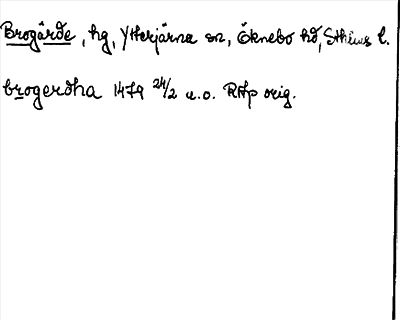 Brogärde, hg, Ytterjärna sn, Öknebo hd, Sthlms l.
brogerdha 1479 24/2 u.o. RAp orig.